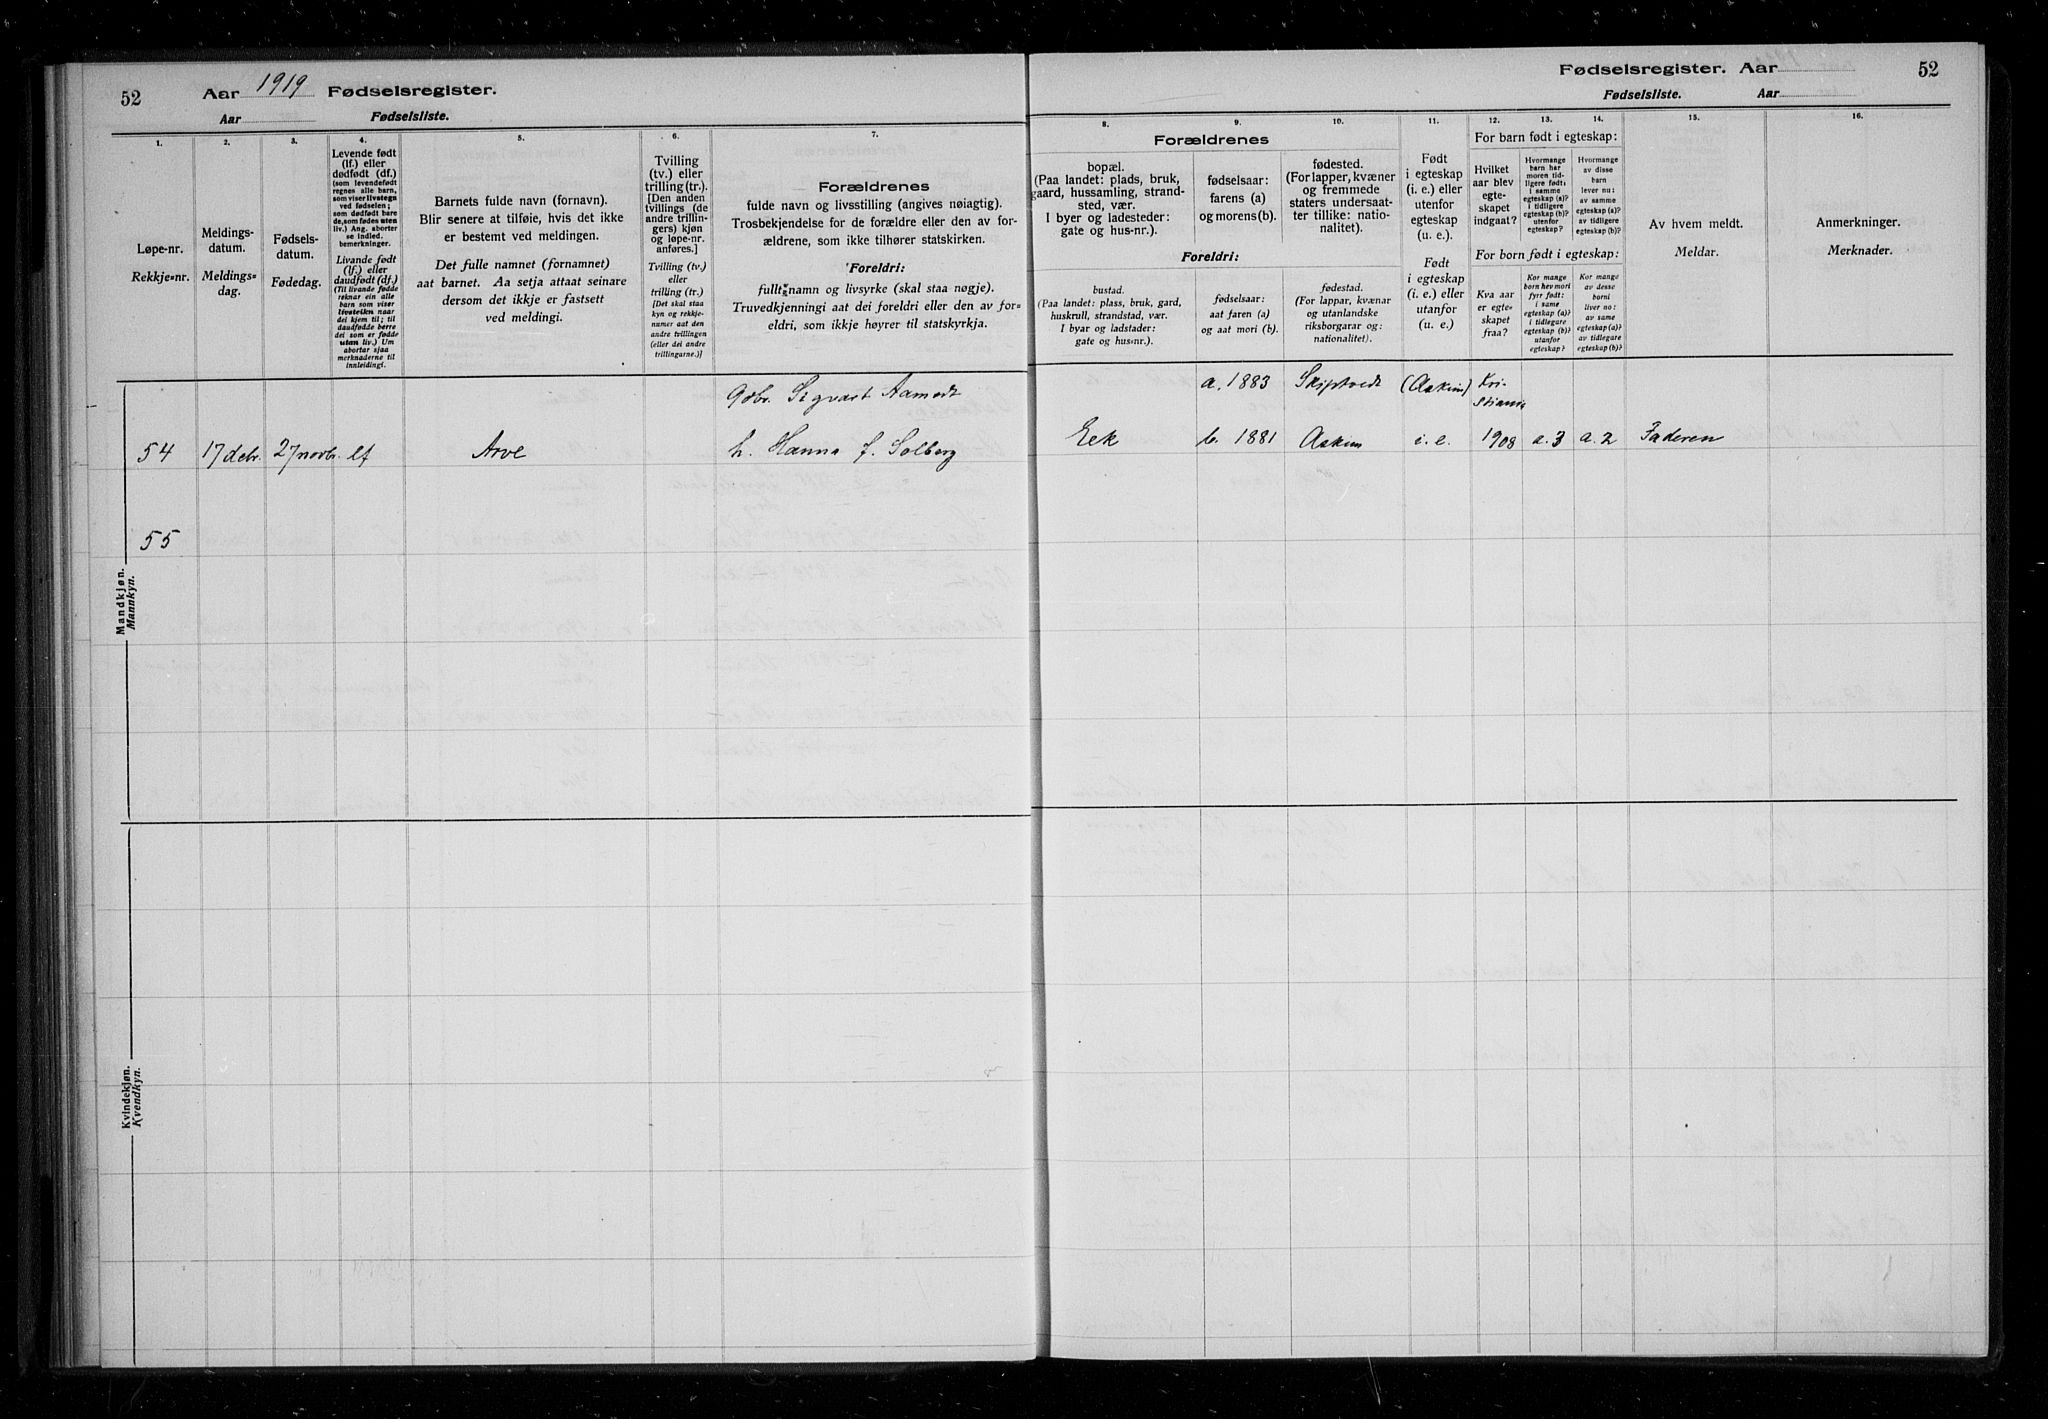 52 Aar 1919 Fødselsregister.
Aar Fødselsliste.
1.
Løpe-nr.
Rekkje=nr.
2.
Meldings-
datum.
Meldings=
dag.
3.
Fødsels-
datum.
Fødedag.
4.
Levende født
(lf.) eller
dødfødt (df.)
(som levendefødt
regnes alle barn,
som viser livstegn
ved fødselen;
som dødfødt bare
de, som fødes uten
liv.) Ang. aborter
se indled.
bemerkninger.
Livande født
(lf.) eller
daudfødt (df.)
(Til livande fødde
reknar ein alle
barn som viser
livsteikn naar
dei kjem til; til
daudfødde berre
dei som er fødde
utan liv.) Um
abortar sjaa
merknaderne til
innleidingi.
5.
Barnets fulde navn (fornavn).
Blir senere at tilføie, hvis det ikke
er bestemt ved meldingen.
Det fulle namnet (fornamnet)
aat barnet. Aa setja attaat seinare
dersom det ikkje er fastsett
ved meldingi.
6.
Tvilling
(tv.) eller
trilling (tr.).
[Den anden
tvillings (de
andre trillin-
gers) kjøn
og løpe-nr.
anføres.]
Tvilling (tv.)
eller
trilling (tr.)
[Det skal staa
kyn og rekkje-
numer aat den
andre tvillingen
(eller dei andre
trillingarne.)]
7.
Forældrenes
fulde navn og livsstilling (angives nøiagtig).
Trosbekjendelse for de forældre eller den av for-
ældrene, som ikke tilhører statskirken.
Foreldri:
fullt namn og livsyrke (skal staa nøgje).
Truvedkjenningi aat dei foreldri eller den av for=
eldri, som ikkje høyrer til statskyrkja.
Gdbr. Sigvart Aamodt
54 17 debr. 27 novbr. lf Arve h. Hanna f. Solberg
55
Mandkjøn.
Mannkyn.
Kvindekjøn.
Kvendkyn.
Fødselsregister. Aar 52
Fødselsliste. Aar
8.
Forældrenes
bopæl.
(Paa landet: plads, bruk,
gaard, hussamling, strand-
sted, vær.
I byer og ladesteder:
gate og hus-nr.).
Foreldri:
bustad.
(Paa landet: plass, bruk, gard,
huskrull, strandstad, vær.
I byar og ladstader:
gate og hus=nr.).
9.
fødselsaar:
farens (a)
og morens (b).
fødselsaar:
aat faren (a)
og aat mori (b).
10.
fødested.
(For lapper, kvæner
og fremmede
staters undersaat-
ter tillike: natio-
nalitet).
fødestad.
(For lappar, kvænar
og utanlandske
riksborgarar og:
nationalitet).
11.
Født
i egteskap
(i. e.) eller
utenfor
egteskap
(u. e.).
Født
i egteskap
(i. e.) eller
utanfor
(u. e.)
For barn født i egteskap:
12.
Hvilket
aar blev
egte-
skapet
indgaat?
13.
Hvormange
barn har
moren tid-
ligere født:
i samme
egteskap (a)?
i tidligere
egteskap (b)?
utenfor
egteskap?
14.
Hvormange
av disse
barn
lever nu:
av samme
egteskap (a)?
av tidligere
egteskap (b)?
For barn født i egteskap:
Kva aar
er egte-
skapet
fraa?
Kor mange
barn hev mori
fyrr født:
i same
egteskap (a)?
i tidlegare
egteskap (b)?
utanfor
egteskap?
Kor mange
av desse
borni
liver no:
av same
egteskap (a)?
av tidlegare
egteskap (b)?
15.
Av hvem meldt.
Meldar.
16.
Anmerkninger.
Merknader.
a. 1883 Skiptvedt (Askim) Kri-
stiania
Eek b. 1881 Askim i. e. 1908 a. 3 a. 2 Faderen